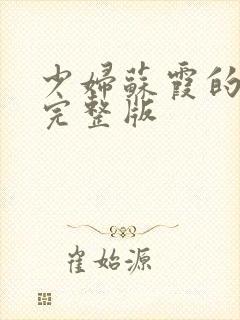 少婦蘇霞的
完整版
崔始源